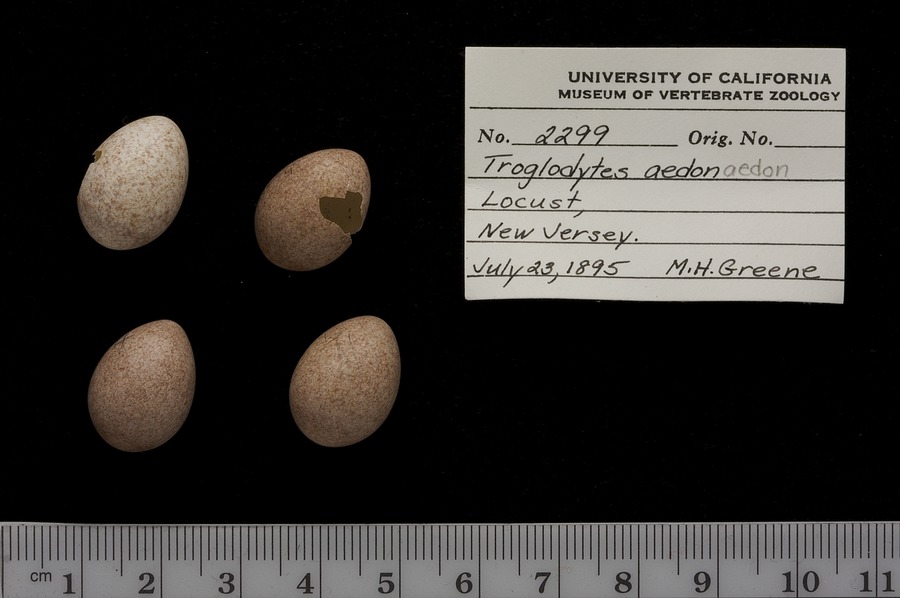 UNIVERSITY OF CALIFORNIA
MUSEUM OF VERTEBRATE ZOOLOGY
No. 2299 Orig. No.
Troglodytes aedon aedon
Locust,
New Jersey.
July 23, 1895 M.H. Greene
cm 1 2 3 4 5 6 7 8 9 10 11